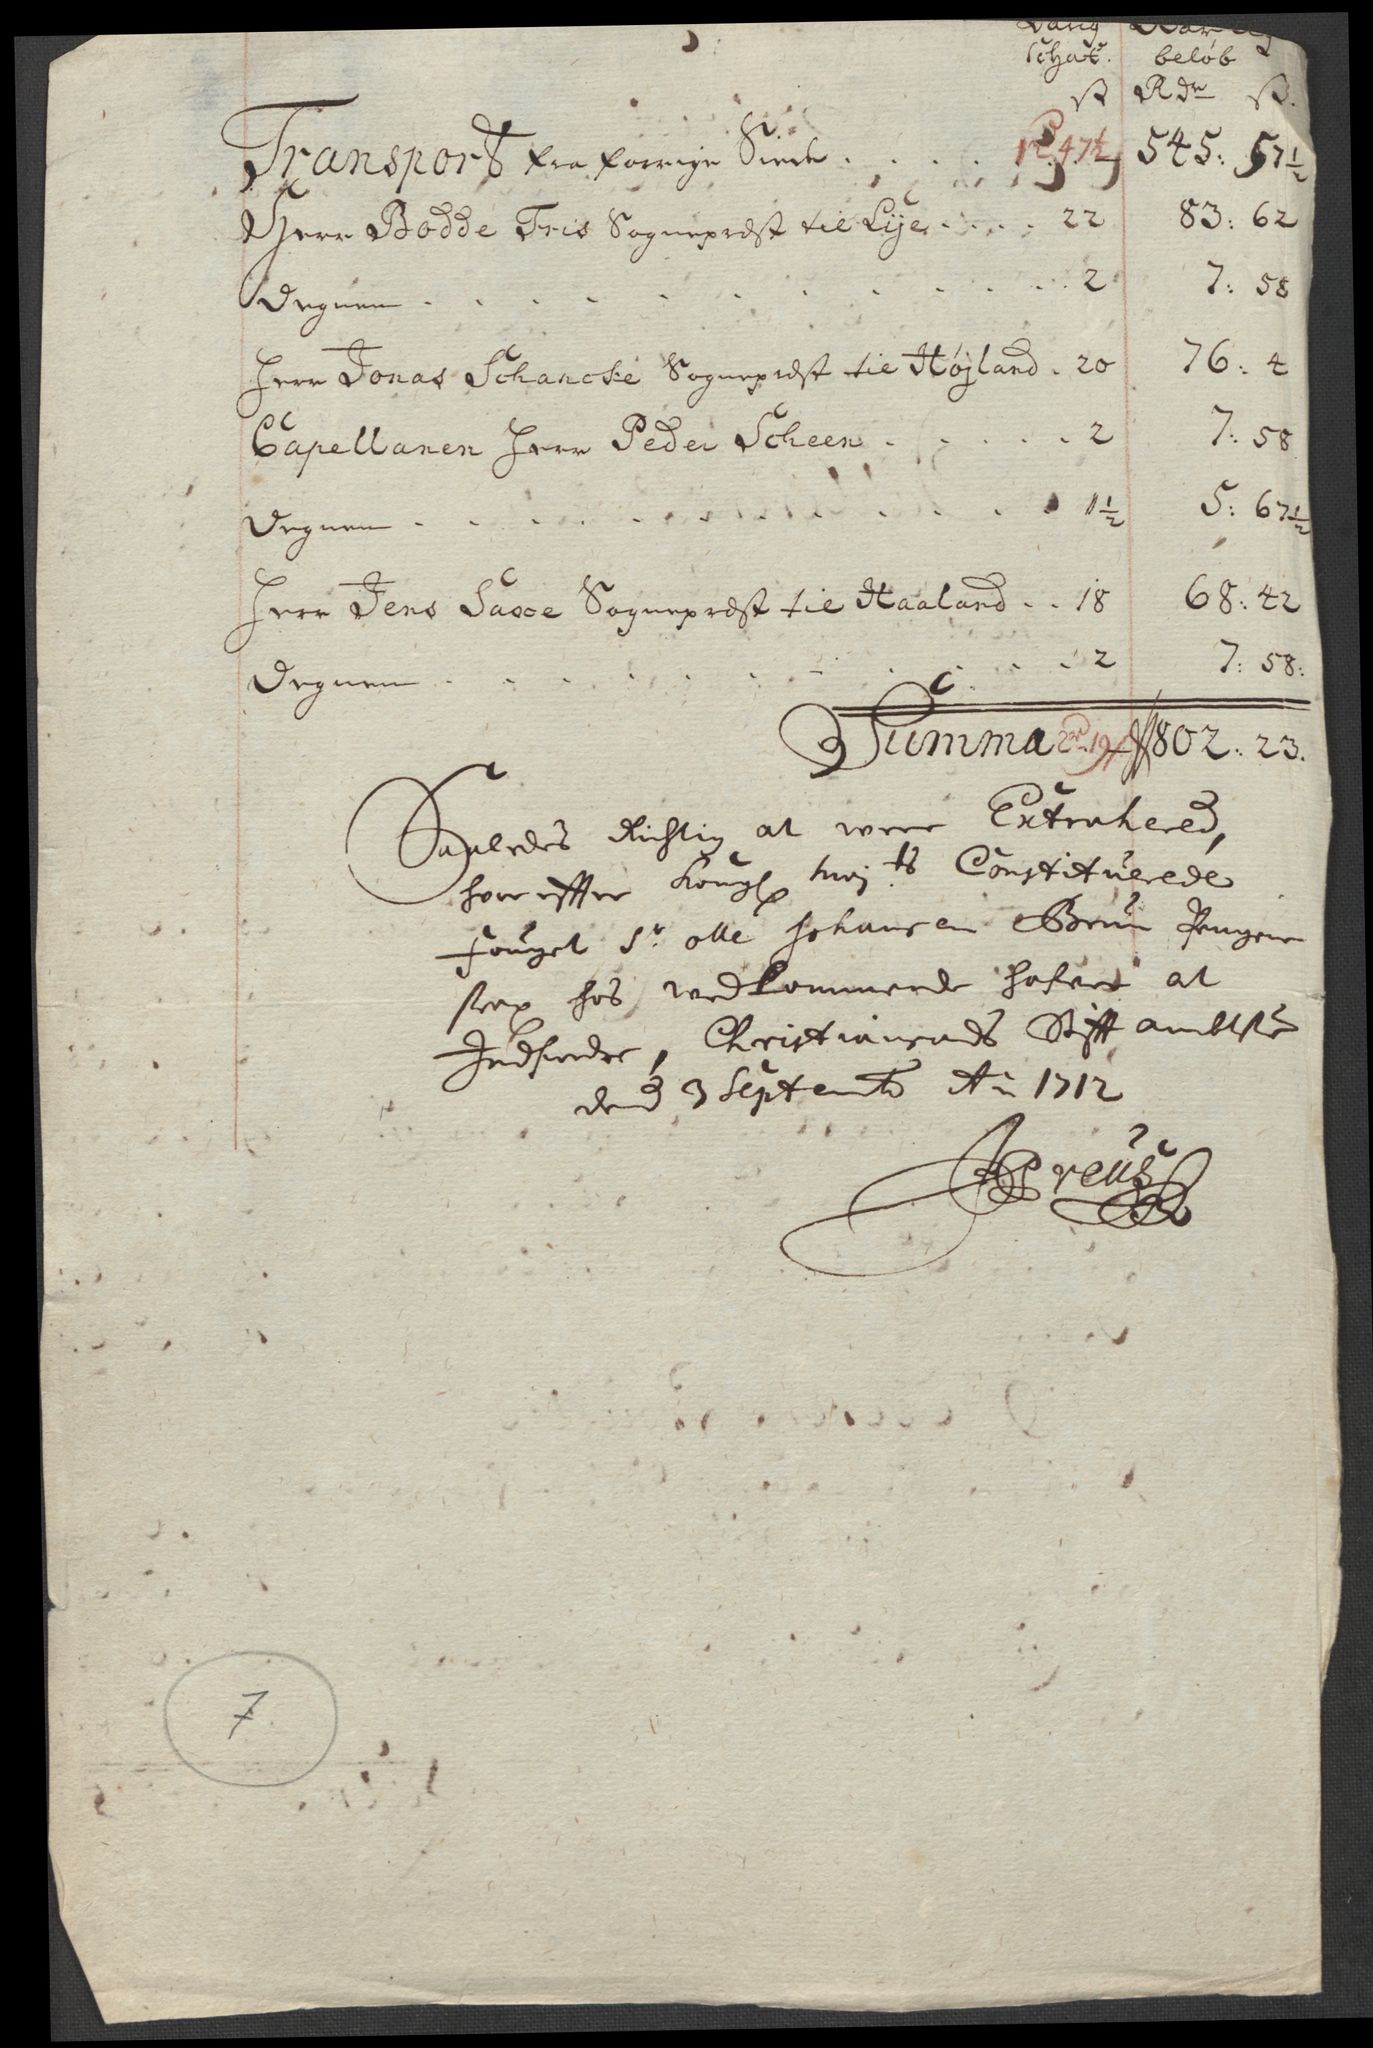 schat. beløb
ß Rdr ß.
Transport fra forrige Siede . . . . 1 47½ 545: 57½
Herr Bodde Friis Sogneprest til Lije . . . . 22 83: 62
Degnen . . . . . . . . . . . 2 7: 58
Herr Jonas Schancke Sogneprest til Højland . 20 76: 4
Capellanen Herr Peder Scheen . . . . . 2 7: 58
Degnen . . . . . . . . . . 1½ 5: 67½
Herr Jens Saxe Sogneprest til Haaland . . 18 68: 42
Degnen . . . . . . . . . . 2 7: 58:
Summa 802: 23.
Saaledes Richtig at were Extraheret,
hvor effter Kongl: May:ts Constituerede
Fouget Sr. Olle Johansen Brun Pengene
strax hos wedkommende hafver at
Indfordre, Christiansands Stiftambtstue
dend 3 Septembr Ao 1712
Preus
7